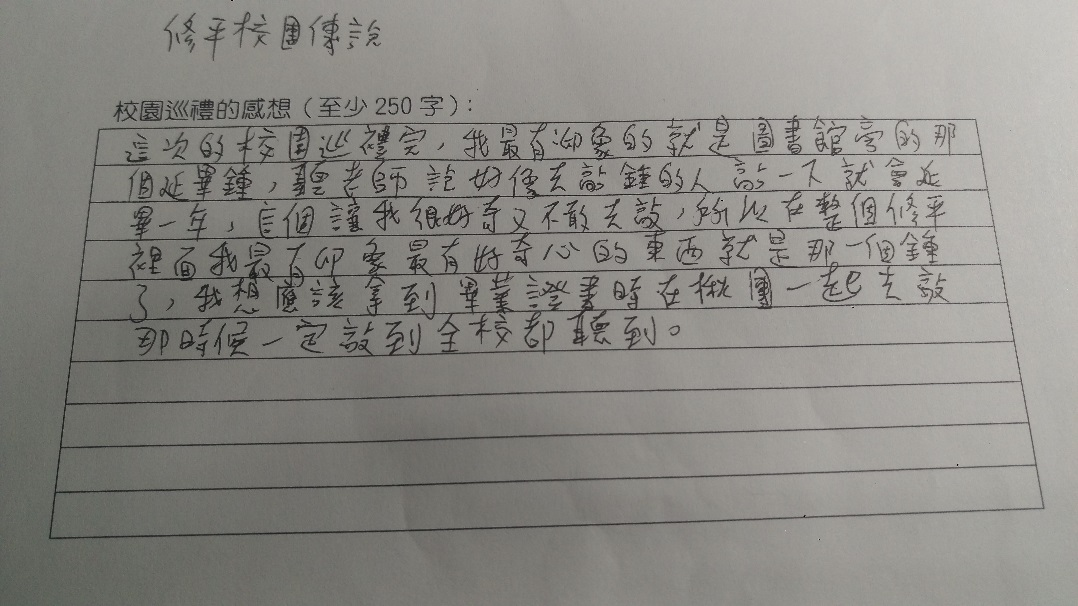 修平校園傳說
校園巡禮的感想（至少 250 字）：
這次的校園巡禮完，我最有印象的就是圖書館旁的那
個延畢鐘，聽老師說好像去敲鐘的人敲一下就會延
畢一年，這個讓我很好奇又不敢去敲，所以在整個修平
裡面我最有印象最有好奇心的東西就是那一個鐘
了，我想應該拿到畢業證書時在揪團一起去敲
那時候一定敲到全校都聽到。